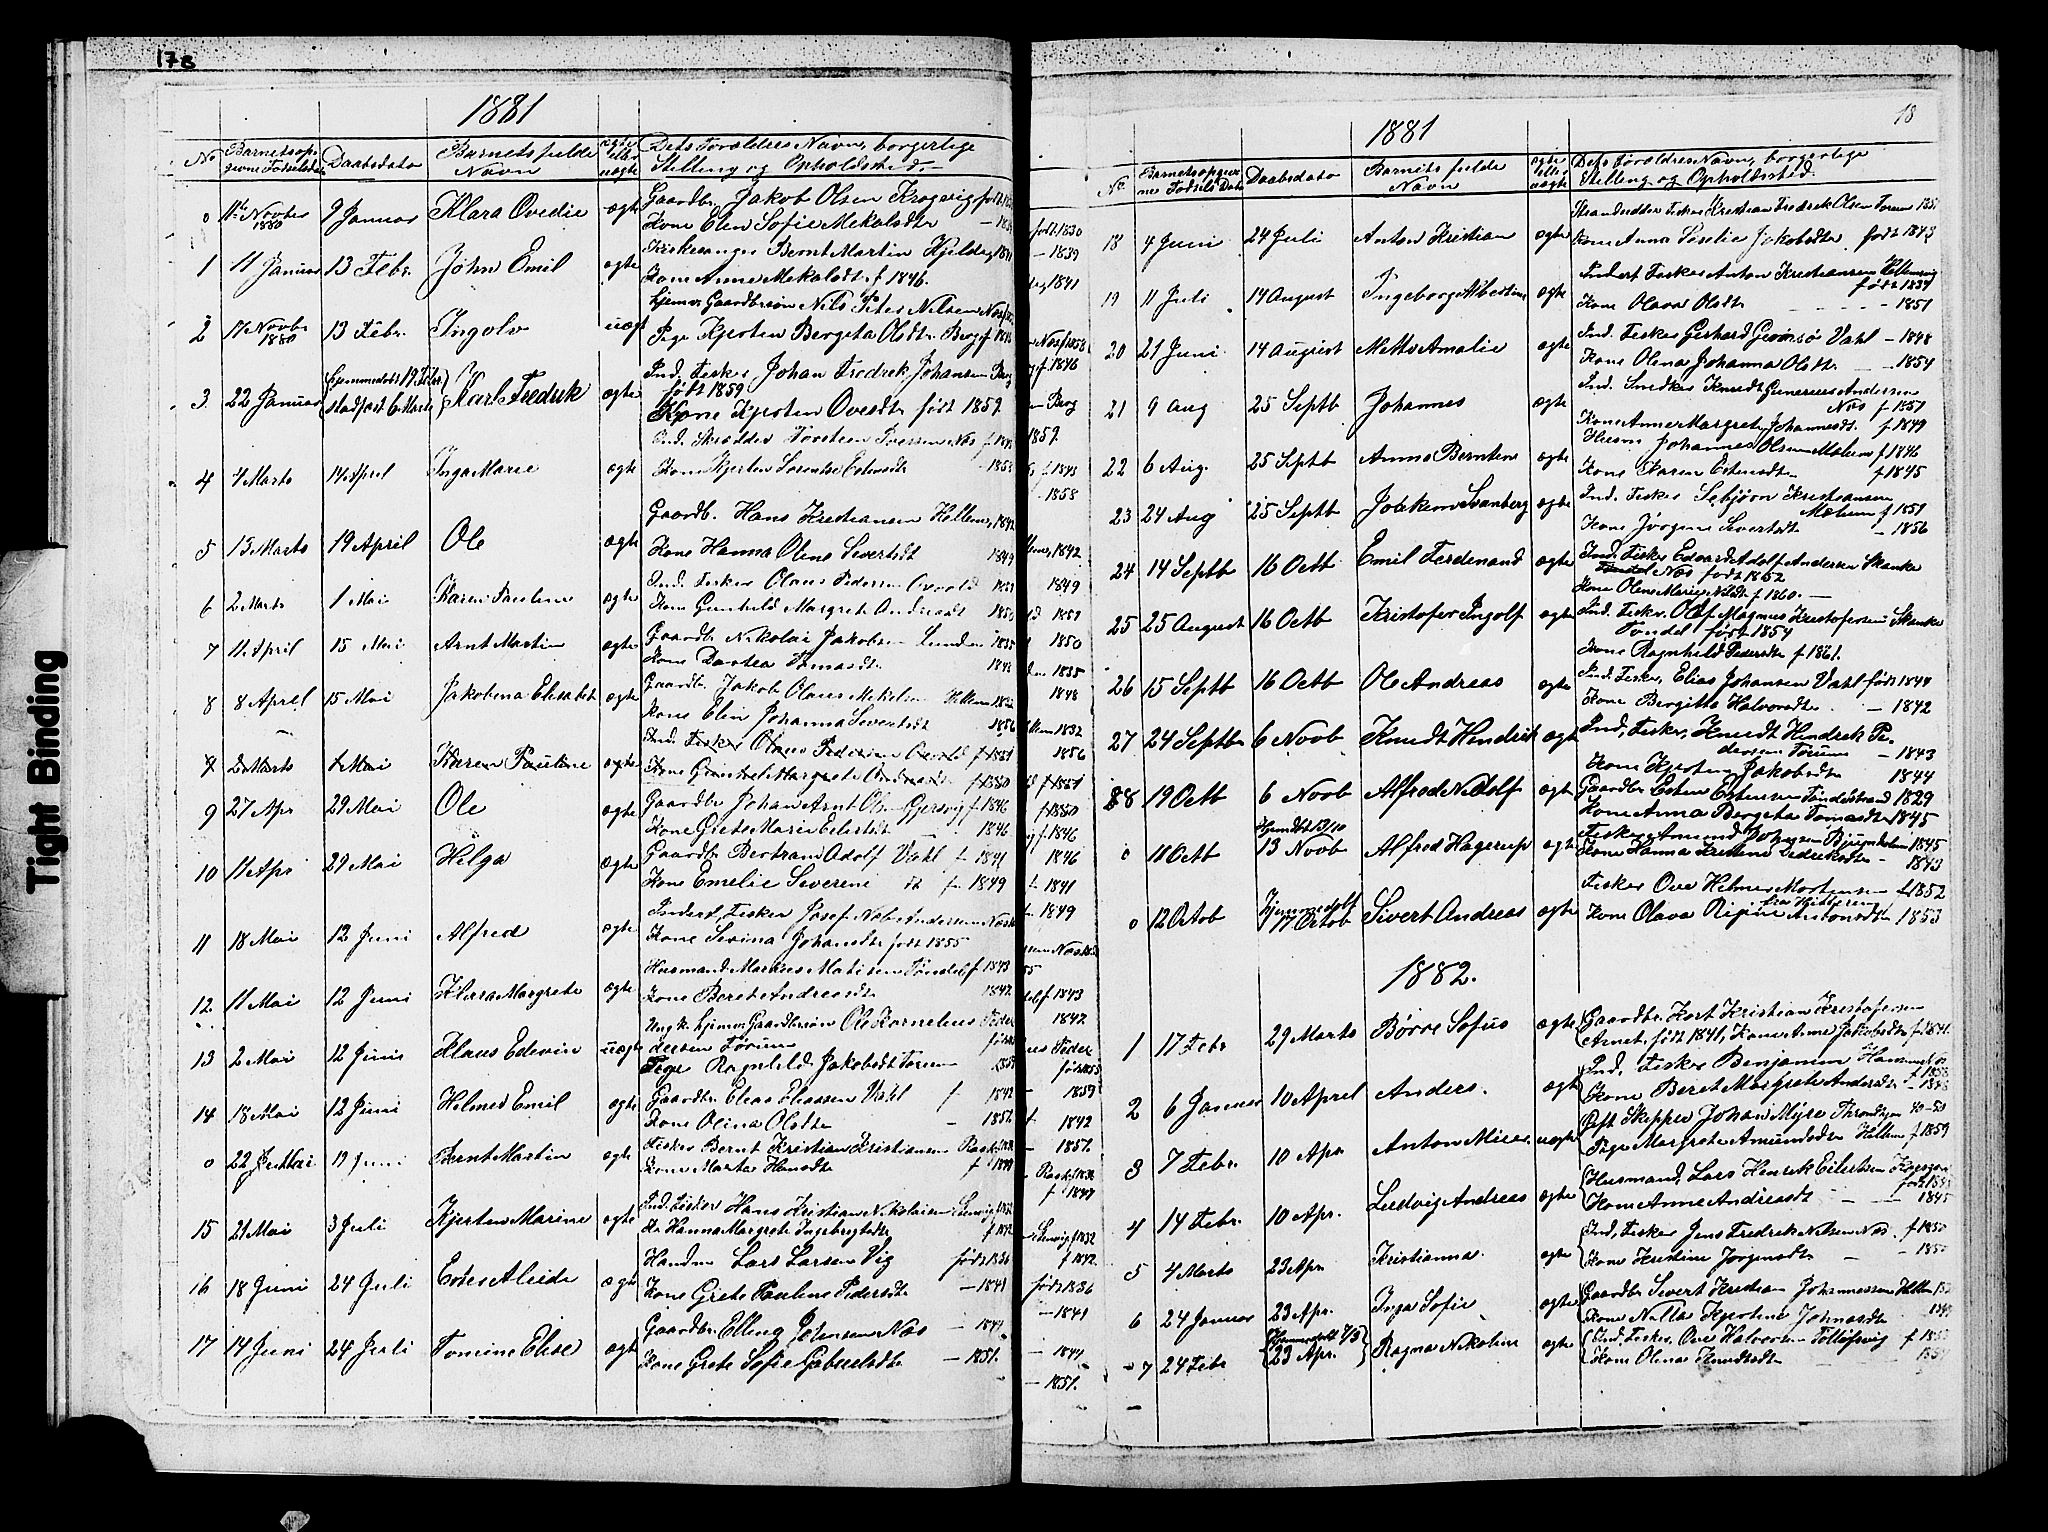 178
1881
No
Barnets op-
givne Fødselsdat
Daabsdato
Barnets fulde
Navn
ægte
eller
uægte
Dets Forældres Navn, borgerlige
Stilling og Opholdssted.
0 11te Novbr 1880 9 Januar Klara Ovedie ægte Gaardbr. Jakob Olsen
Kone Elen Sofie Mekalsdtr
1 11 Januar 13 Febr. John Emil ægte Bernt Martin
Kone Anne Mekalsdtr f 1846.
2 17 Novbr 1880 13 Febr. Ingolv uægt hjemv. Gaardbrsøn Nils Peter Nilsen Næs
Pige Kjersten Bergeta Olsdtr Berg f 1846
3 22 Januar Hjemmedøbt 19 Febr. stadfæst 6 Marts Karl Fredrik ægte Ind. Fisker Johan Fredrek Johansen Berg
født 1859
Kone Kjersten Ovesdtr født 1859.
4 4 Marts 14 April Inga Marie ægte Ind. Skrædder Torsteen Næs f 1843
Kone Kjersten Sorentse - 1858
5 13 Marts 19 April Ole ægte Gaardb. Hans Kristiansen Hellem, 1842
Kone Hanna Olene Severtsdt 1849
6 2 Marts 1 Mai Karen Pauline ægte Ind. Fisker Olaus Pedersen 1851
Kone Gunhild Margrete Andreasdt 1850
7 11 April 15 Mai Arnt Martin ægte Gaardbr Nikolai Jakobsen Sunden 1835
Kone Dortea Tomasdtr 1848
8 8 April 15 Mai Jakobena Elisabet ægte Gaardbr. Jakob Olaus Mekelsen Hellem 1832
Kone Elen Johanna Severtsdt 1856
9 2 Marts 1 Mai Karen Pauline ægte Ind. Fisker Olaus Pedersen f 1851
Kone Gunhild Margrete Andreasdt f 1850
9 27 Apr 29 Mai Ole ægte Gaardbr Johan Arnt Olsen Gjersvig f 1846
Kone Grete Marie Eilertsdt - 1846
10 11 Apr 29 Mai Helga ægte Gaardbr Bertram Adolf Vahl f. 1841
Kone Emelie Severene dt f. 1849
11 18 Mai 12 Juni Alfred ægte Inderst, Fisker Josef Andersen Næs
Kone Serina Johansdtr født 1855
12. 11 Mai 12 Juni Klara Margrete ægte Husmand Markus Matisen Tøndel f 1843
Kone Beret Andreasdtr 1847
13 2 Mai 12 Juni Klaus Edevin uægte Ungk. hjemv. Gaardbrsøn Ole Kornelius Peder
dersen Forum
Pige Ragnhild Jakobsdt Forum 1859
14 18 Mai 12 Juni Helmer Emil ægte Gaardbr Elias Eliassen Vahl f 1842
Kone Olina Olsdtr - 1857.
0 22 Mai 19 Juni Bernt Martin ægte Fisker Bernt Kristian Kristiansen
Kone Marta Hansdtr
15 21 Mai 3 Juli Kjersten Marine ægte Ind. Fisker Hans Kristian Nikolaisen f 1832
Kone Hanna Margrete Ingebregtsdtr f 1842
16 18 Juni 24 Juli Aleide ægte Lars Larsen Vig født 1836
Kone Grete Pauline Pedersdtr - 1841
17 14 Juni 24 Juli Tomine Elise ægte Gaardbr. Elling Johnsen Næs - 1844
Kone Grete Sofie Gabrielsdtr - 1851.
18
1881
No
Barnets opgiv-
ne Fødsels Dato
Daabsdato
Barnets fulde
Navn
ægte
eller
uægte
Dets Forældres Navn, borgerlige
Stilling og Opholdssted.
18 4 Juni 24 Juli Anton Kristian ægte Strandsidder Fisker Kristian Fredrik Olsen Forum
Kone Anna Seselie Jakobsdtr født 1843
19 11 Juli 14 August Ingeborg Albertine ægte Inderst Fisker Anton Kristiansen Hellemsvig
født 1834
Kone Olava Olsdtr - 1851
20 21 Juni 14 August Mette Amalie ægte Ind. Fisker Gerhard Vahl - 1848
Kone Olena Johanna Olsdtr - 1854
21 9 Aug 25 Septb Johannes ægte Ind. Smedker Knudt Andersen
Næs f 1857
Kone Anne Margrete Johannesdt. f 1849
22 6 Aug. 25 Septb Anna Berntine ægte Husm. Johannes Olsen f 1846
Kone Karen f 1845
23 24 Aug 25 Septb Joakem Svanberg ægte Ind. Fisker Sebjørn Kristiansen
f 1851
Kone Jørgine Severtsdt - 1856
24 14 Septb 16 Octb Emil Ferdenand ægte Ind. Fisker Edvard Adolf Andersen Skanke
Næs født 1852
Kone Olene Marie Nilsdt f 1860.
25 25 August 16 Octb Kristofer Ingolf ægte Ind. Fisker Olaf Magnus Kristofersen Skanke
Tøndel født 1854
Kone Ragnhild Pedersdtr f 1861.
26 15 Septb 16 Octb Ole Andreas ægte Ind. Fisker, Elias Johansen Vahl født 1844
Kone Bergitte Halvorsdtr. - 1842
27 24 Septb 6 Novb Knudt Hendrik ægte Ind. Fisker, Knudt Hendrik Pe-
dersen Forum - 1843
Kone Kjersten Jakobsdtr 1844
28 19 Octb 6 Novb Alfred Nidolf ægte Gaardbr Esten Estensen Tøndelstrand 1829
Kone Anna Bergeta Tomasdtr 1845
0 11 Octb Hjemdbt 13/10 13 Novb Alfred Hagerup ægte Fisker Amund 1845
Kone Hanna Kristine Dedreksdtr - 1843
0 12 Octob hjemmedøbt 17 Octob Sivert Andreas ægte Fisker Ove Helmer Mortensen f 1852
fra Hitteren
Kone Olava Antonsdtr 1853
1882.
1 17 Febr 29 Marts Børre Sofus ægte Gaardbr. Kort Kristian Kristofersen
Arnet, født 1841, Kone Anne Jakobsdtr f 1841.
2 6 Januar 10 Aprel Anders. ægte Ind. Fisker Benjamin Hansen
f 1858
Kone Beret Margrete Andersdtr - 1848
3 7 Febr. 10 Apr Anton uægte Gift Skipper Johan Myre Throndhjem 40-50
Pige Margrete Amundsdtr Hellem f 1859
4 14 Febr. 10 Apr. Ludvig Andreas ægte Husmand, Lars Henrik Eilertsen
Kone Anne Andreasdt - 1845
5 4 Marts 23 Apr. Kristianna ægte Ind, Fisker Jens Fredrek Nilsen Næs
Kone Kristine Jørgensdtr
6 24 Januar 23 Apr. Inga Sofie ægte Gaardbr Severt Kristian Johannessen Hellem
Kone Nilla Kjerstine Johnasdtr
7 24 Febr Hjemmedøbt 7/3 23 Apr. Ragna Nikoline ægte Ind. Fisker, Ove Halvorsen
Kone Olena Knudtsdtr
Tight Binding